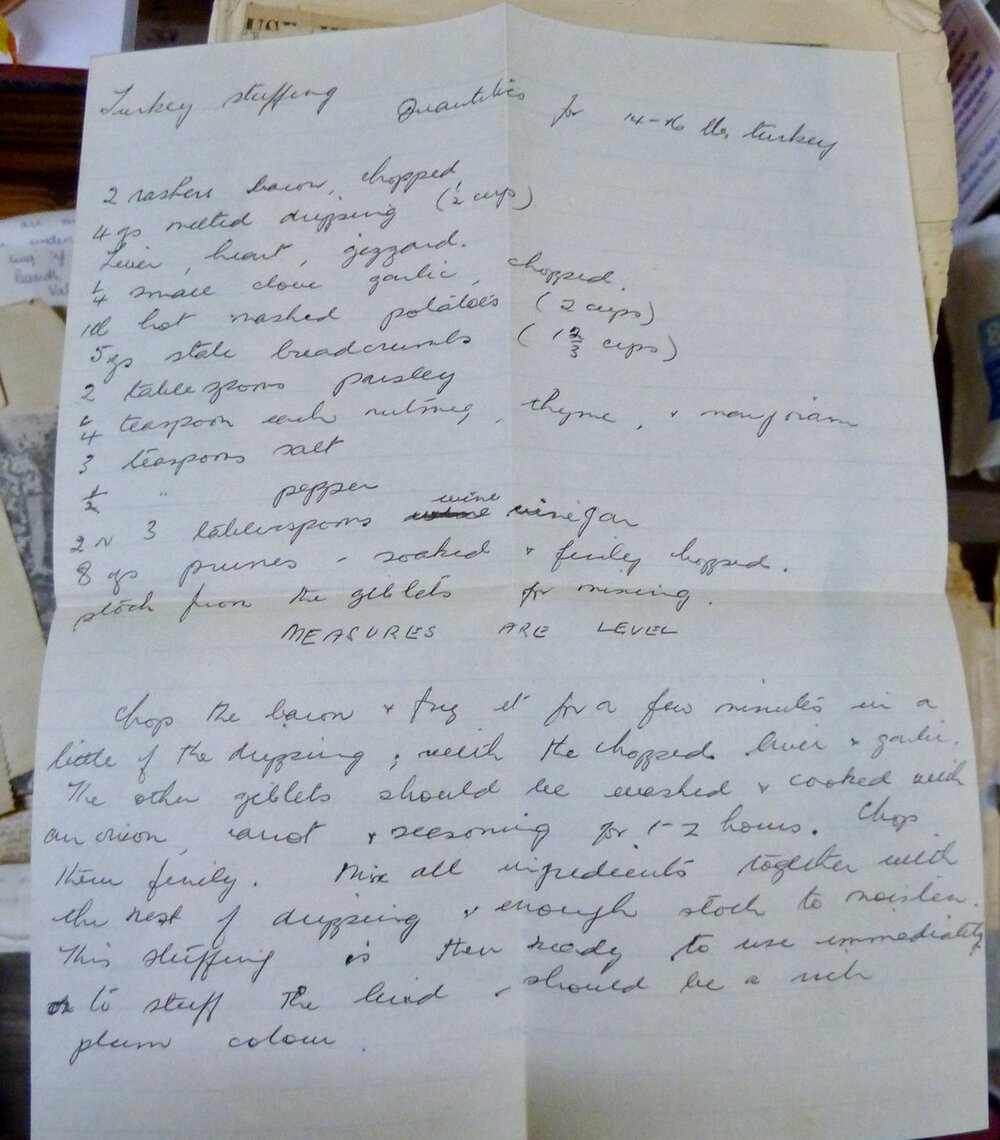 Turkey stuffing Quantities for 14-16 lbs turkey
2 rashers bacon, chopped
4 ozs melted dripping (½ cup)
Liver, heart, gizzard.
¼ small clove garlic, chopped.
1lb hot mashed potatoes (2 cups)
5 ozs stale breadcrumbs (1⅔ cups)
2 tablespoons parsley
¼ teaspoon each nutmeg, thyme, & marjoram
3 teaspoons salt
½ " pepper
2 or 3 tablespoons wine vinegar
8 ozs prunes - soaked & finely chopped.
stock from the giblets for mixing.
MEASURES ARE LEVEL
Chop the bacon & fry it for a few minutes in a
little of the dripping; with the chopped liver & garlic.
The other giblets should be washed & cooked with
an onion, carrot & seasoning for 1-2 hours. Chop
them finely. Mix all ingredients together with
the rest of dripping & enough stock to moisten.
This stuffing is then ready to use immediately
to stuff the bird & should be a rich
plum colour.